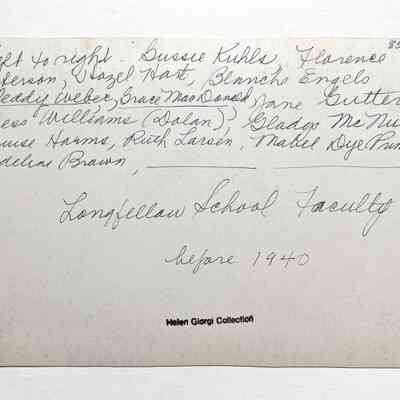 eft to right. Gussie Kuhls, Florence
erson, Hazel Hart, Blanche Engels
eddy Weber, Grace MacDonald, Jane Gutter
ess Williams (Dolan), Gladys McNu
uise Harms, Ruth Larsen, Mabel Dye Prun
delias Brown,
Longfellow School Faculty
before 1940
Helen Giorgi Collection